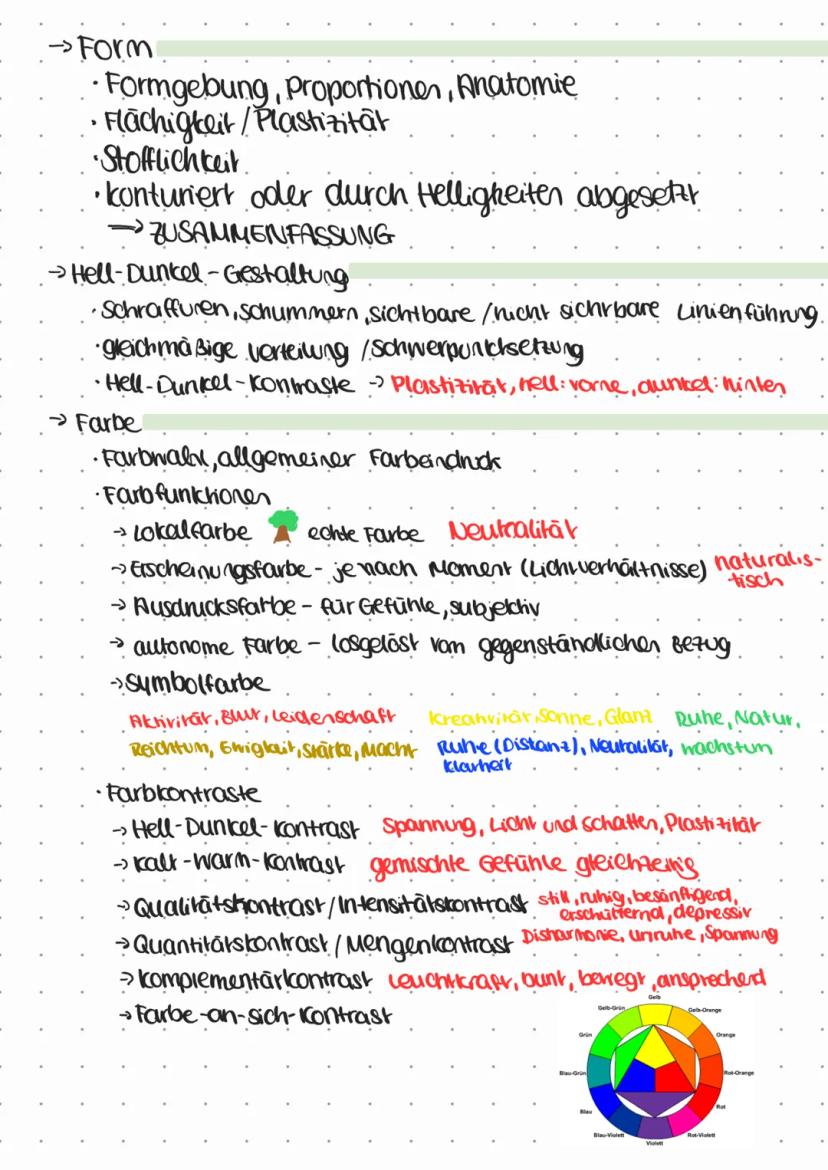 → Form
· Formgebung, Proportionen, Anatomie
· Flächigkeit / Plastizität
· Stofflichkeit
· konturiert oder durch Helligkeiten abgesetzt
→ ZUSAMMENFASSUNG
→ Hell-Dunkel-Gestaltung
· Schraffuren, schummern, sichtbare / nicht sichtbare Linienführung
· gleichmäßige Verteilung / Schwerpunktsetzung
· Hell-Dunkel-Kontraste → Plastizität, hell: vorne, dunkel: hinten
→ Farbe
· Farbwahl, allgemeiner Farbeindruck
· Farbfunktionen
→ Lokalfarbe echte Farbe Neutralität
→ Erscheinungsfarbe - je nach Moment (Lichtverhältnisse) naturalis-
tisch
→ Ausdrucksfarbe - für Gefühle, subjektiv
→ autonome Farbe - losgelöst vom gegenständlichen Bezug
→ Symbolfarbe
Aktivität, Blut, Leidenschaft Kreativität, Sonne, Glanz Ruhe, Natur,
Reichtum, Ewigkeit, Stärke, Macht Ruhe (Distanz), Neutralität, wachstum
Klarheit
· Farbkontraste
→ Hell-Dunkel-Kontrast Spannung, Licht und Schatten, Plastizität
→ Kalt-Warm-Kontrast gemischte Gefühle gleichzeitig
→ Qualitätskontrast / Intensitätskontrast still, ruhig, besänftigend,
erschütternd, depressiv
→ Quantitätskontrast / Mengenkontrast Disharmonie, unruhe, Spannung
→ Komplementärkontrast Leuchtkraft, bunt, bewegt, ansprechend
→ Farbe-an-sich-Kontrast
Gelb
Gelb-Grün Gelb-Orange
Grün Orange
Blau-Grün Rot-Orange
Blau Rot
Blau-Violett Rot-Violett
Violett